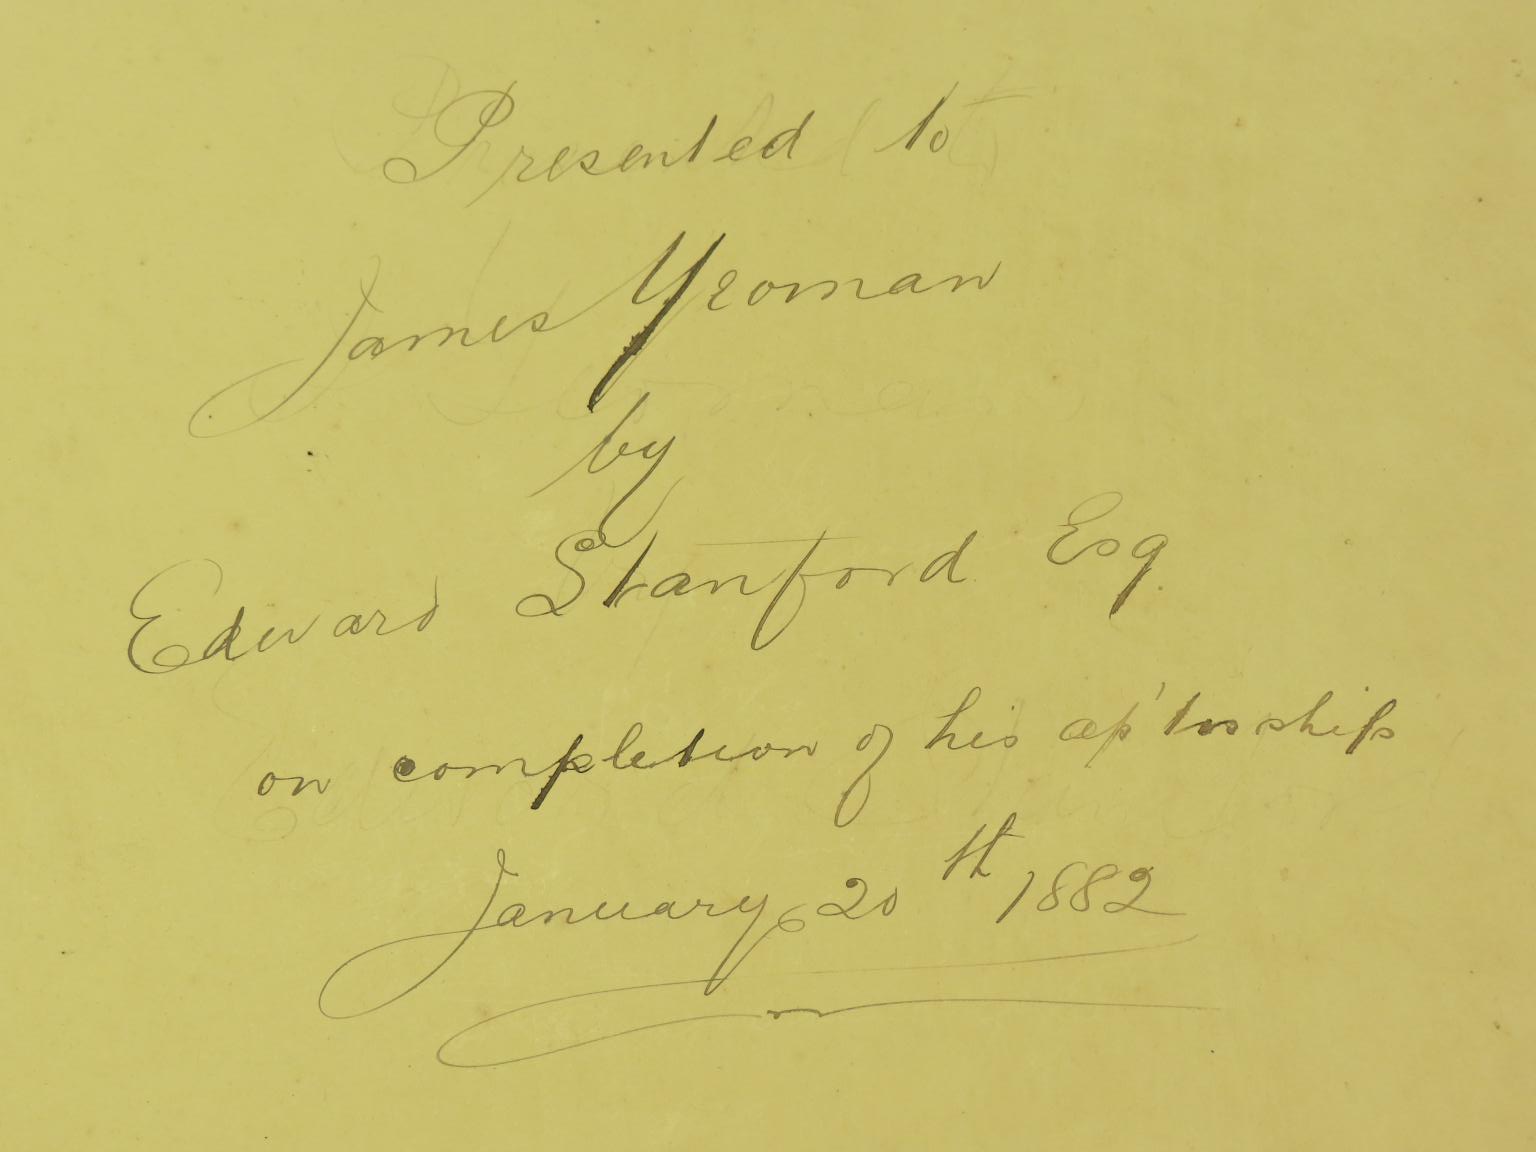 Presented to
James Yeoman
by
Edward Stanford Esq.
on completion of his ap'tesship
January 20th 1882